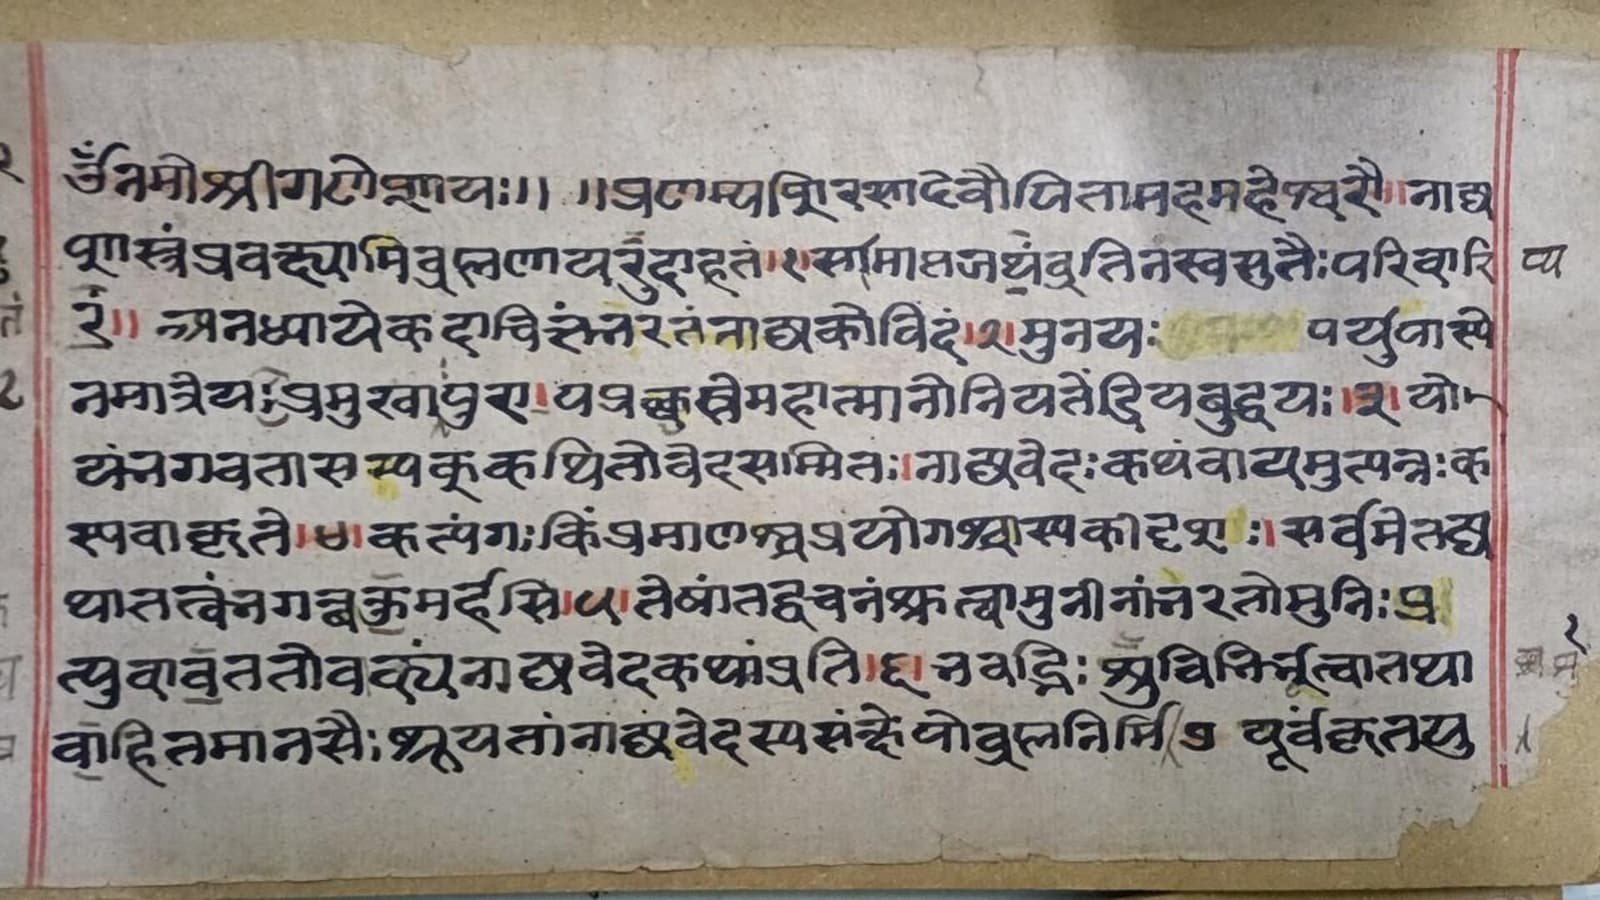 ॐ नमो श्रीगणेशाय ः ।। ।। प्रणम्यशिरसादेवौपितामहमहेश्वरौ ।। नाट्य
शास्त्रंप्रवक्ष्यामिब्रह्मणायदुदाहृतं । १ ।
रं ।। अनध्यायेकदाचित्तंभरतंनाट्यकोविदं । २ । मुनयः पर्युपास्ये
नमात्रेयः प्रमुखापुरा । पप्रछुस्तेमहात्मानोनियतेंद्रियबुद्धयः । ३ । यो
यंभगवतासम्यक्कथितोवेदसम्मितः । नाट्यवेदः कथंवायमुत्पन्नः क
स्यवाकृते । ४ । कत्यंगः किंप्रमाणश्चप्रयोगश्चास्यकीदृशः । सर्वमेतद्य
थातत्वंभगवन्वक्तुमर्हसि । ५ । तेषांतद्वचनंश्रुत्वामुनीनांभरतोमुनिः प्र
त्युवाचततोवाक्यंनाट्यवेदकथांप्रति । ६ । भवद्भिः शुचिभिर्भूत्वातथा
वाहितमानसैः श्रूयतांनाट्यवेदस्यसंभवोब्रह्मनिर्मि ७ पूर्वंकृतयु